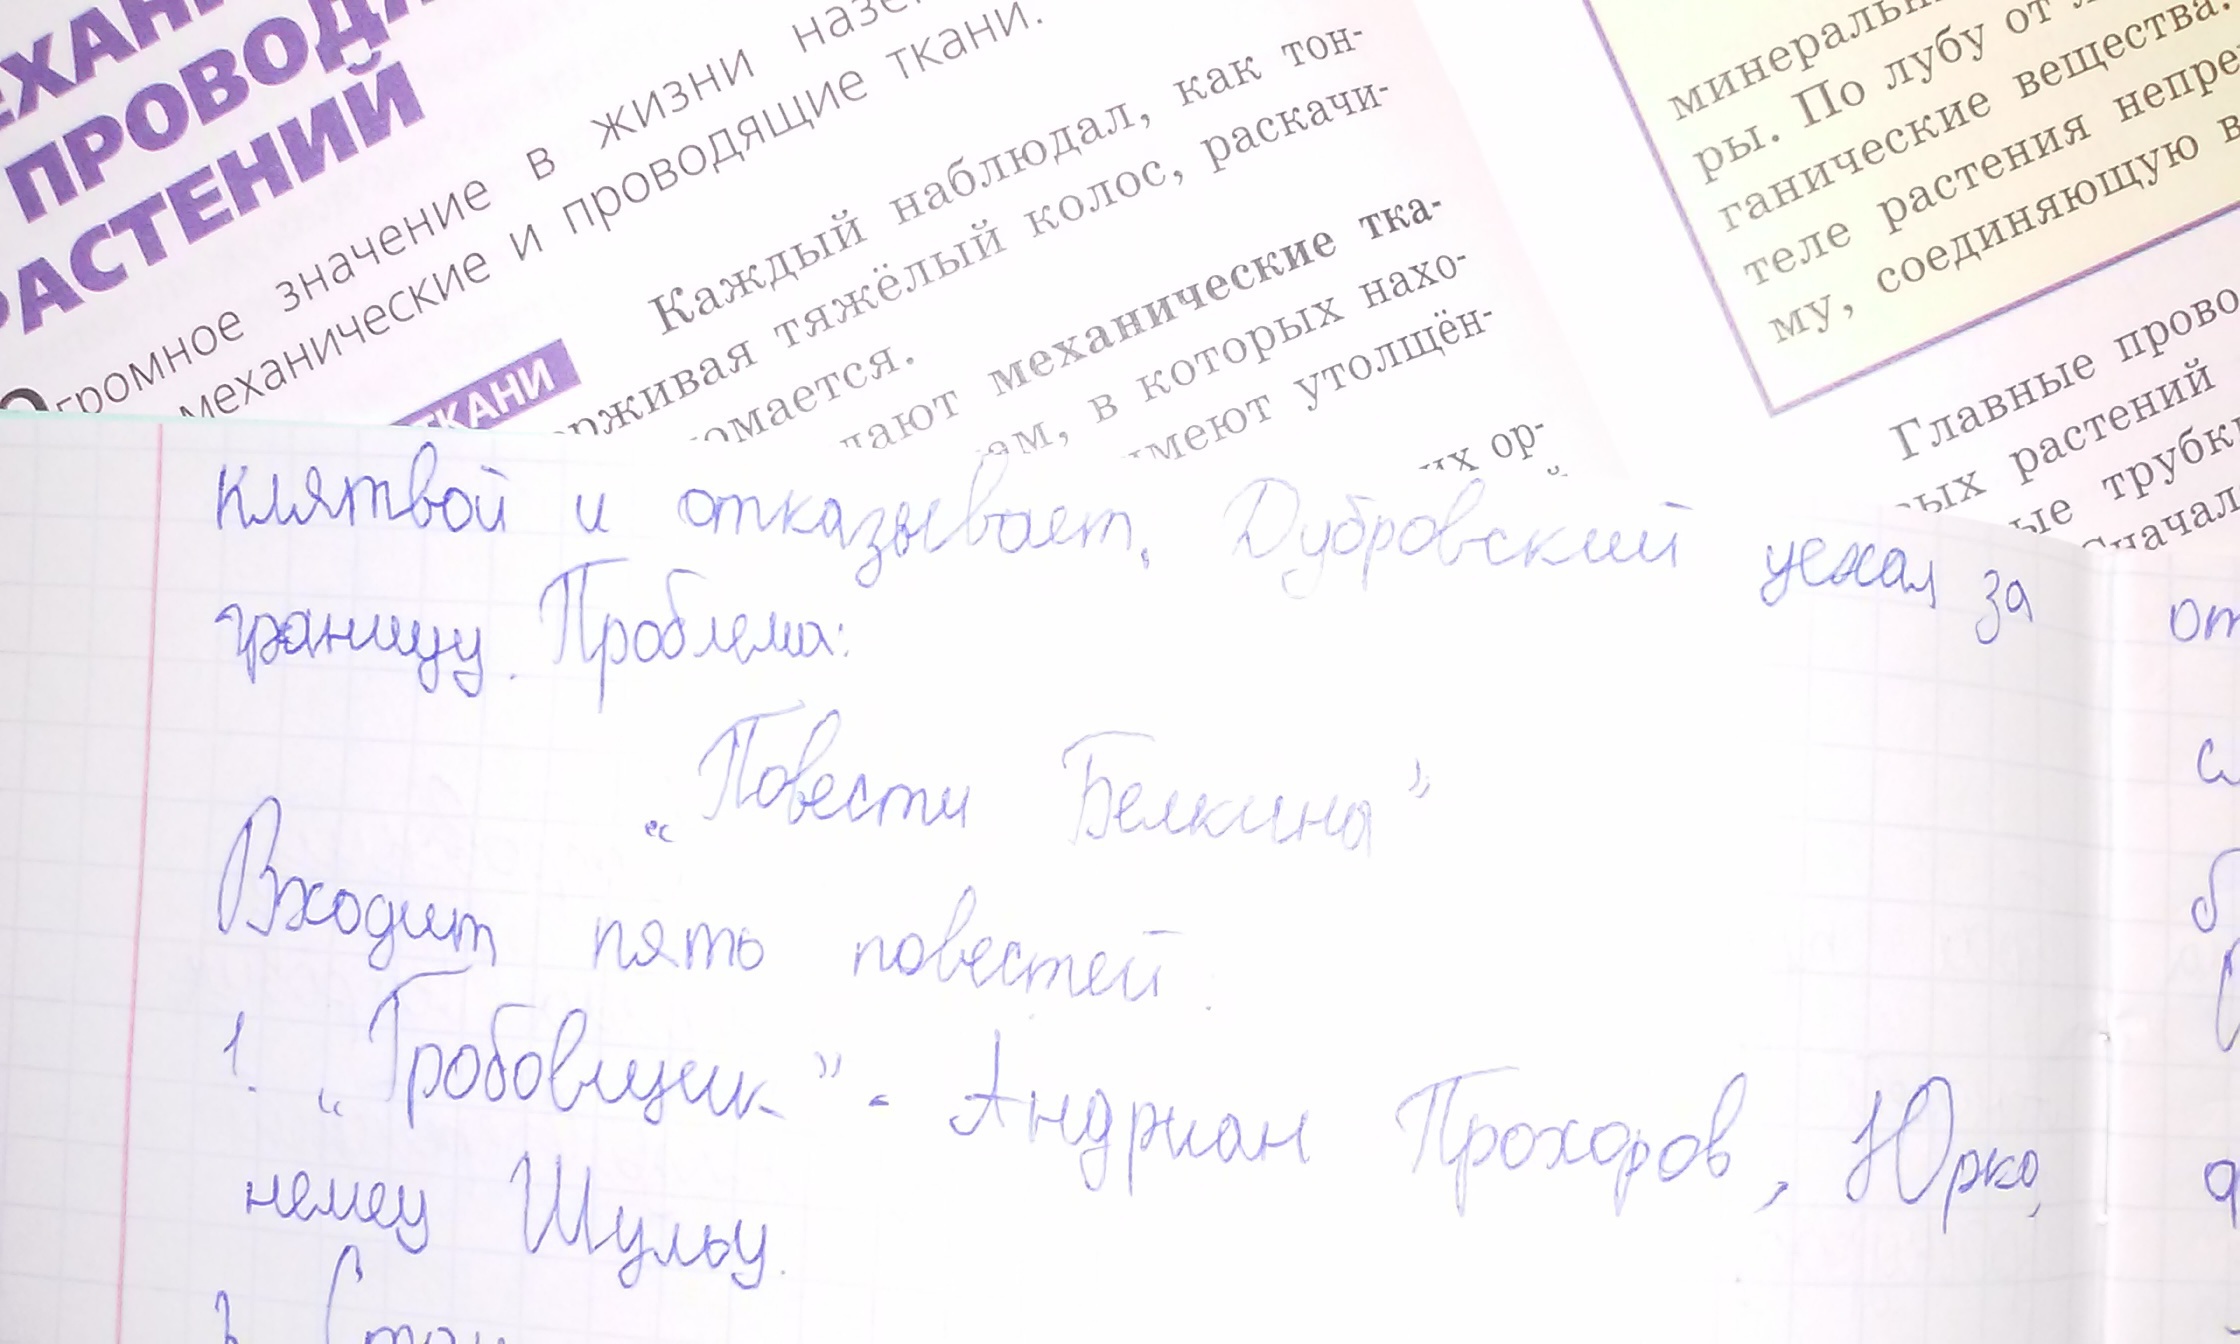 ПРОВОД
РАСТЕНИЙ
Огромное значение в жизни
механические и проводящие ткани.
ТКАНИ
Каждый наблюдал, как тон-
тяжёлый колос, раскачи-
механические тка-
в которых нахо-
имеют утолщён-
ор-
ры. По лубу от
ганические вещества.
теле растения
му, соединяющую
Главные
растений
клятвой и отказывает. Дубровский уехал за
границу. Проблема:
„Повести Белкина”
Входит пять повестей.
1. „Гробовщик” - Андриан Прохоров, Юрко,
немец Шульц.